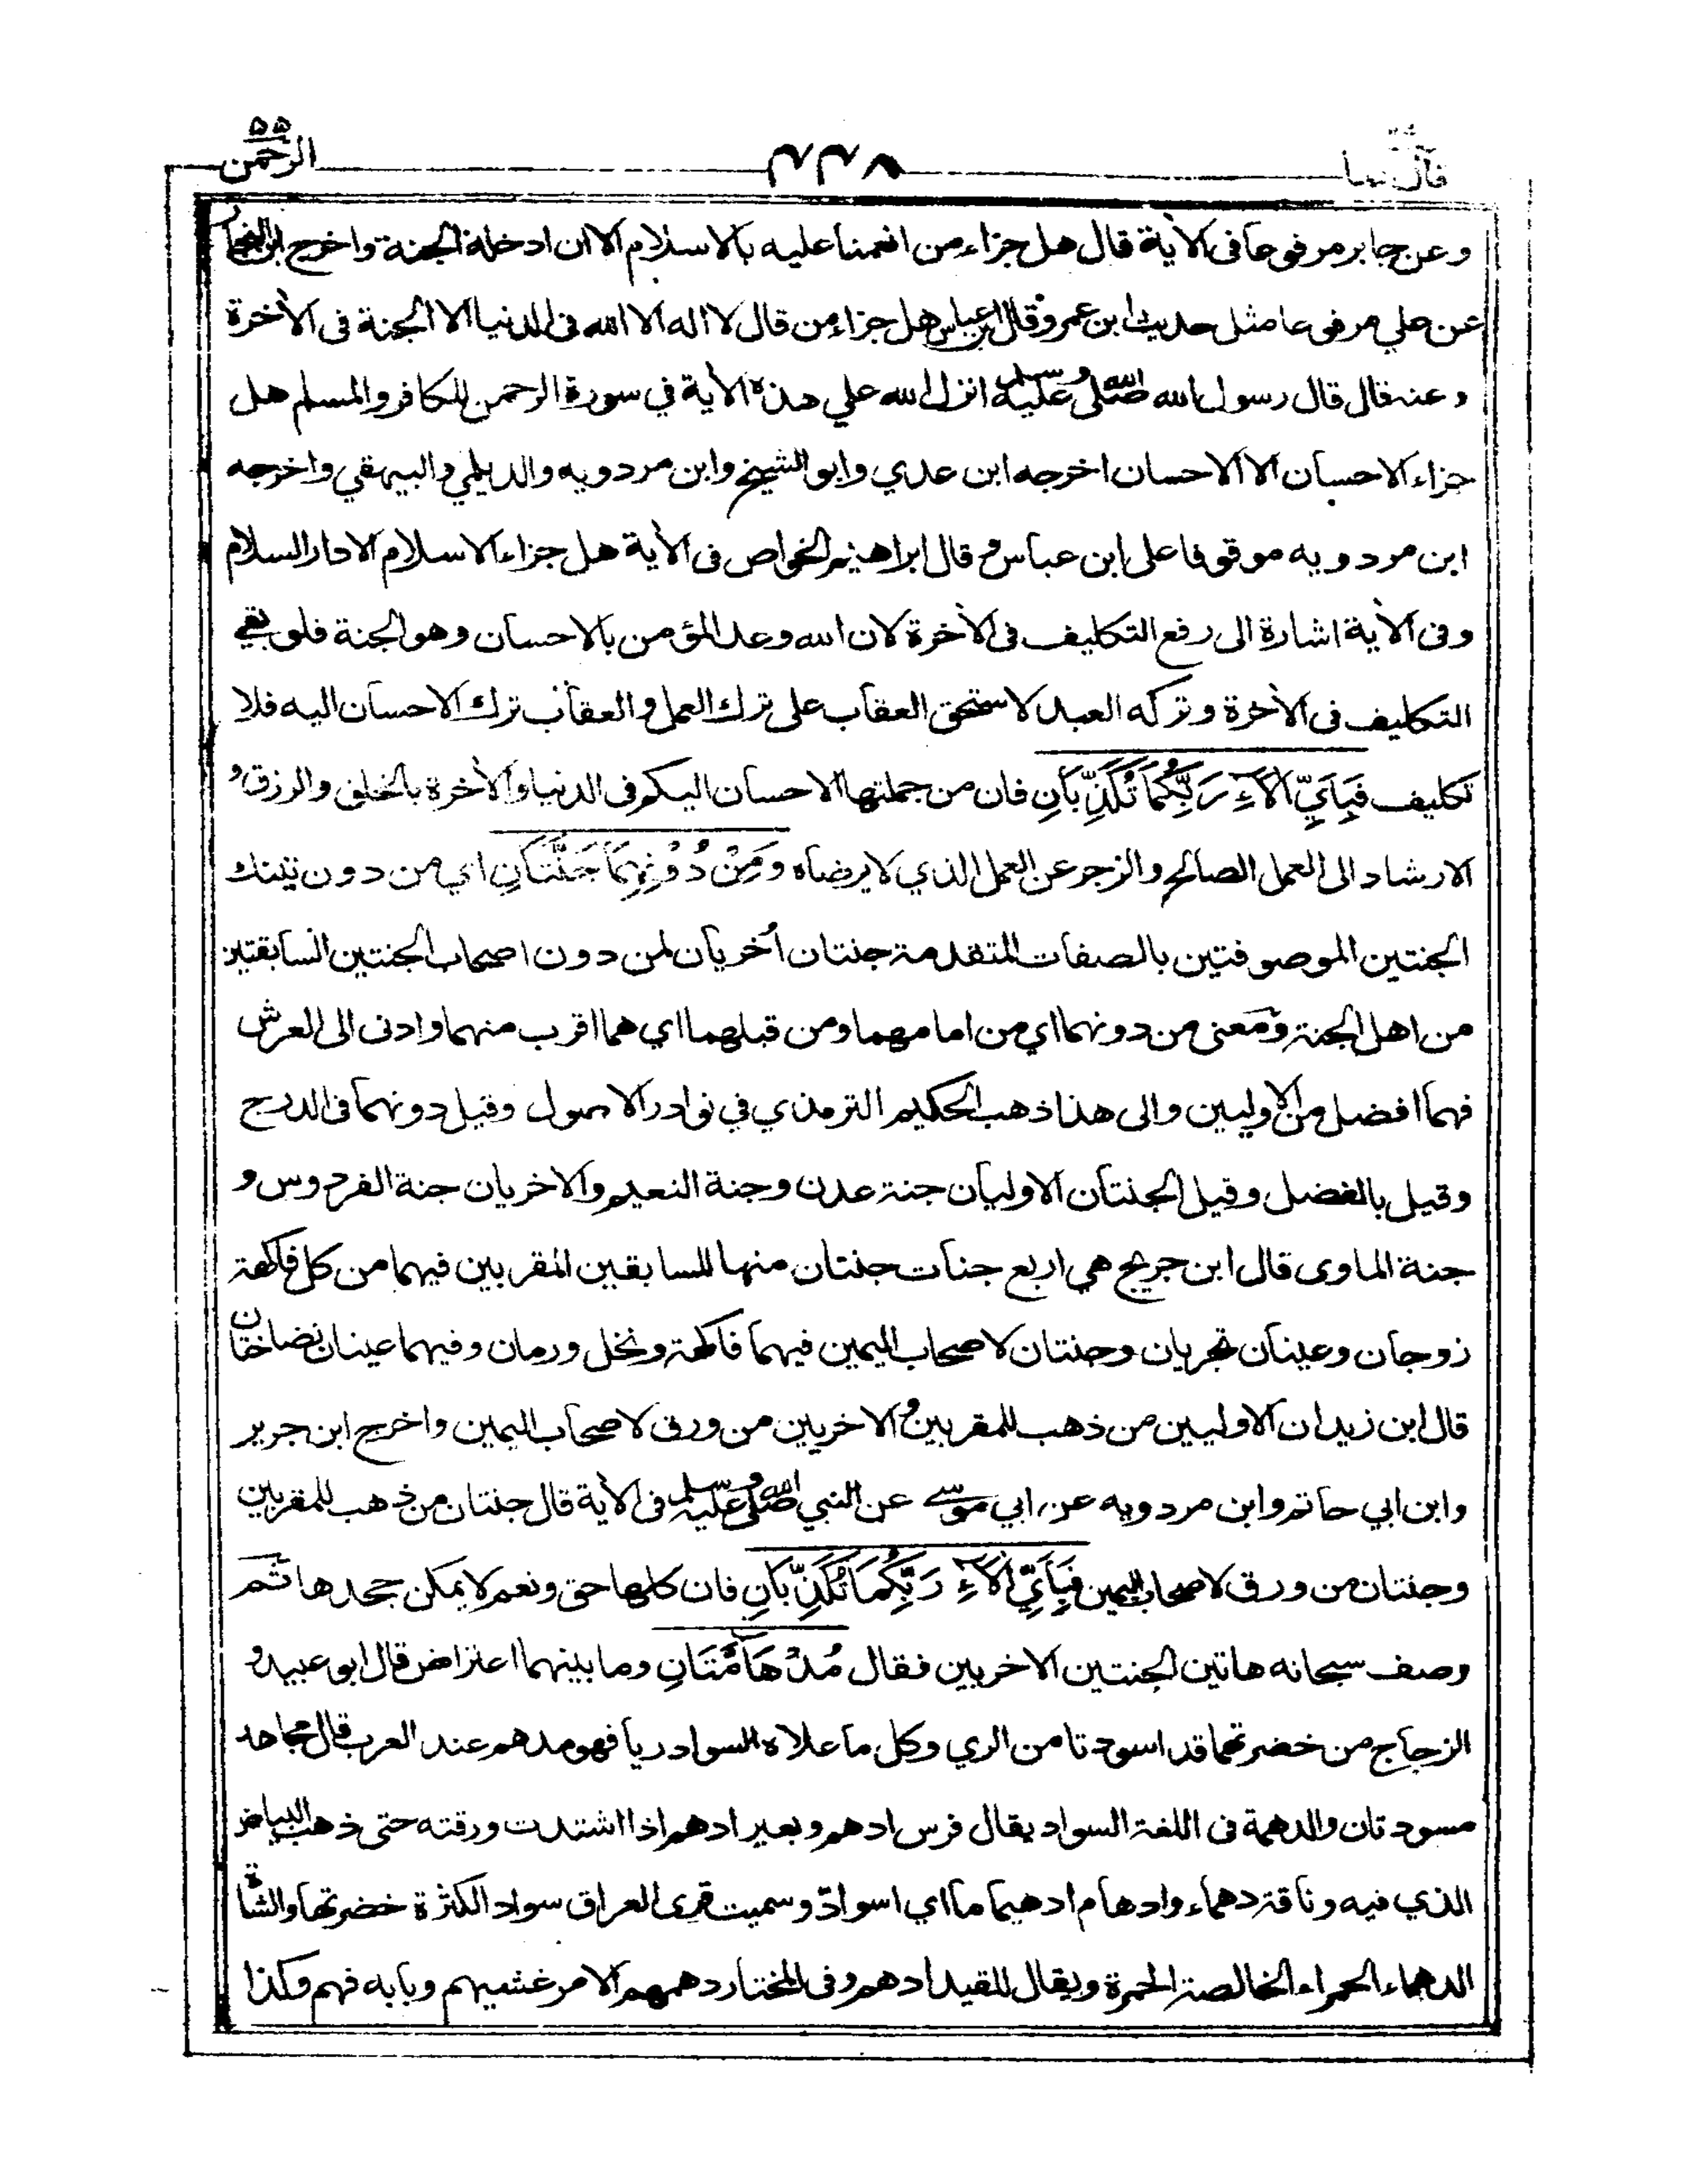 الرحمن ٥٥
٢٣٨
وعن جابر مرفوعا فى الأية قال هل جزاء من انعمنا عليه بالاسلام الا ان ادخله الجنة واخرج ابن النجار
عن علي مرفوعا مثل حديث ابن عمر وقال ابن عباس هل جزاء من قال لا اله الا الله فى الدنيا الا الجنة فى الأخرة
وعنه قال قال رسول الله صلى الله عليه وسلم انزل الله علي هذه الأية في سورة الرحمن للكافر والمسلم هل
جزاء الاحسان الا الاحسان اخرجه ابن عدي وابو الشيخ وابن مردويه والديلمي والبيهقي واخرجه
ابن مردويه موقوفا على ابن عباس وقال ابراهيم الخواص فى الأية هل جزاء الاسلام الا دار السلام
وفى الأية اشارة الى رفع التكليف فى الأخرة لان الله وعد المؤمن بالاحسان وهو الجنة فلو بقي
التكليف فى الأخرة وتركه العبد لاستحق العقاب على ترك العمل والعقاب ترك الاحسان اليه فلا
تكليف فَبِاَيِّ اٰلَآءِ رَبِّكُمَا تُكَذِّبَانِ فان من جملتها الاحسان اليكم فى الدنيا والأخرة بالخلق والرزق و
الارشاد الى العمل الصالح والزجر عن العمل الذي لا يرضاه وَمِنْ دُوْنِهِمَا جَنَّتَانِ اي من دون تينك
الجنتين الموصوفتين بالصفات المتقدمة جنتان أخريان لمن دون اصحاب الجنتين السابقتين
من اهل الجنة ومعنى من دونهما اي من امامهما ومن قبلهما اي هما اقرب منهما وادنى الى العرش
فهما افضل من الاوليين والى هذا ذهب الحكيم الترمذي في نوادر الاصول وقيل دونهما فى الدرج
وقيل بالفضل وقيل الجنتان الاوليان جنة عدن وجنة النعيم والاخريان جنة الفردوس و
جنة الماوى قال ابن جريج هي اربع جنات جنتان منها للسابقين المقربين فيهما من كل فاكهة
زوجان وعينان تجريان وجنتان لاصحاب اليمين فيهما فاكهة ونخل ورمان وفيهما عينان نضاختان
قال ابن زيد ان الاوليين من ذهب للمقربين والاخريين من ورق لاصحاب اليمين واخرج ابن جرير
وابن ابي حاتم وابن مردويه عن ابي موسى عن النبي صلى الله عليه وسلم فى الأية قال جنتان من ذهب للمقربين
وجنتان من ورق لاصحاب اليمين فَبِاَيِّ اٰلَآءِ رَبِّكُمَا تُكَذِّبَانِ فان كلها حق ونعم لا يمكن جحدها ثم
وصف سبحانه هاتين الجنتين الاخريين فقال مُدْهَآمَّتَانِ وما بينهما اعتراض قال ابو عبيد و
الزجاج من خضرتهما قد اسودتا من الري وكل ما علاه السواد ريا فهو مدهم عند العرب قال مجاهد
مسودتان والدهمة فى اللغة السواد يقال فرس ادهم وبعير ادهم اذا اشتدت ورقته حتى ذهب البياض
الذي فيه وناقة دهماء وادهام ادهيماما اي اسوادّ وسميت قرى العراق سوادا لكثرة خضرتها والشاة
الدهماء الحمراء الخالصة الحمرة ويقال للقيد ادهم وفى المختار دهمهم الامر غشيهم وبابه فهم وكذا